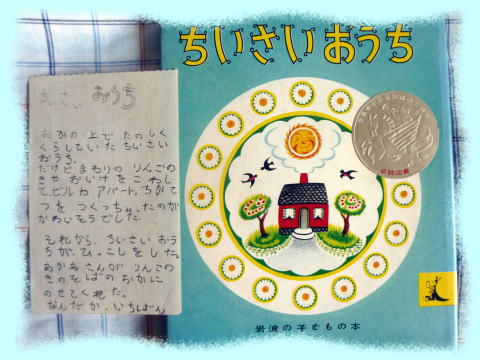 ちいさい おうち
おかの 上で たのしく
くらしていた ちいさい
おうち。
だけどまわりの りんごの
きと おいけを こわし
てビルや アパート、ちかて
つを つくっちゃったのが
かわいそうでした。
それから、ちいさい おう
ちが、ひっこしをした。
おかあさんが りんごの
きの そばの おかに
のせてくれた。
なんだか、いちばん
ちいさいおうち
岩波の子どもの本